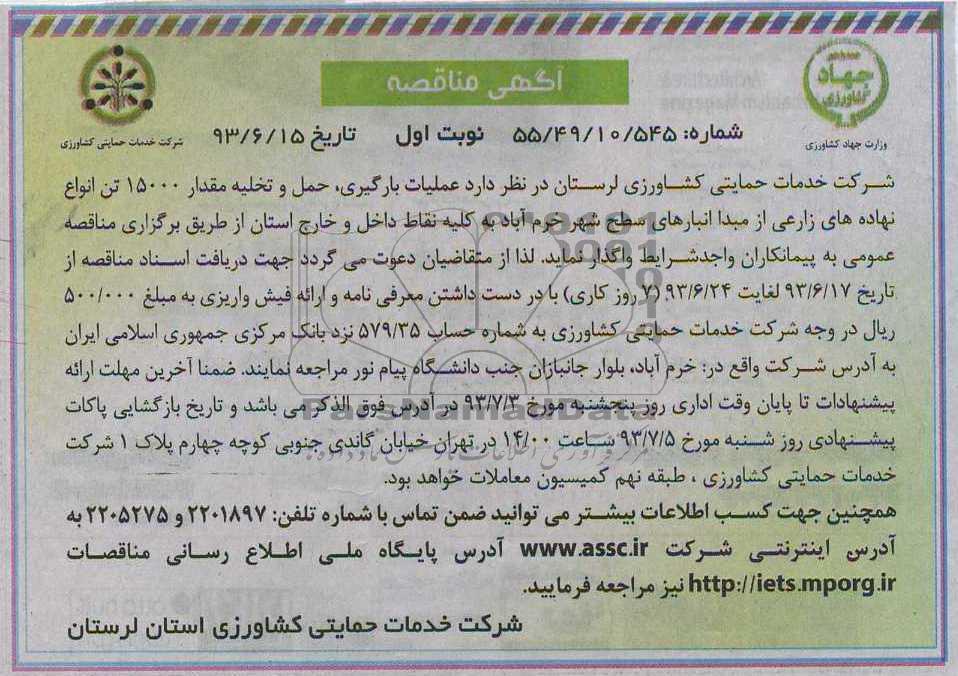 آگهی مناقصه
جهاد
کشاورزی
وزارت جهاد کشاورزی
شرکت خدمات حمایتی کشاورزی
شماره: ۵۵/۴۹/۱۰/۵۴۵ نوبت اول تاریخ ۹۳/۶/۱۵
شرکت خدمات حمایتی کشاورزی لرستان در نظر دارد عملیات بارگیری، حمل و تخلیه مقدار ۱۵۰۰۰ تن انواع
نهاده های زارعی از مبدا انبارهای سطح شهر خرم آباد به کلیه نقاط داخل و خارج استان از طریق برگزاری مناقصه
عمومی به پیمانکاران واجدشرایط واگذار نماید. لذا از متقاضیان دعوت می گردد جهت دریافت اسناد مناقصه از
تاریخ ۹۳/۶/۱۷ لغایت ۹۳/۶/۲۴ (۷ روز کاری) با در دست داشتن معرفی نامه و ارائه فیش واریزی به مبلغ ۵۰۰/۰۰۰
ریال در وجه شرکت خدمات حمایتی کشاورزی به شماره حساب ۵۷۹/۳۵ نزد بانک مرکزی جمهوری اسلامی ایران
به آدرس شرکت واقع در: خرم آباد، بلوار جانبازان جنب دانشگاه پیام نور مراجعه نمایند. ضمنا آخرین مهلت ارائه
پیشنهادات تا پایان وقت اداری روز پنجشنبه مورخ ۹۳/۷/۳ در آدرس فوق الذکر می باشد و تاریخ بازگشایی پاکات
پیشنهادی روز شنبه مورخ ۹۳/۷/۵ ساعت ۱۴/۰۰ در تهران خیابان گاندی جنوبی کوچه چهارم پلاک ۱ شرکت
خدمات حمایتی کشاورزی ، طبقه نهم کمیسیون معاملات خواهد بود.
همچنین جهت کسب اطلاعات بیشتر می توانید ضمن تماس با شماره تلفن: ۲۲۰۱۸۹۷ و ۲۲۰۵۲۷۵ به
آدرس اینترنتی شرکت www.assc.ir آدرس پایگاه ملی اطلاع رسانی مناقصات
http://iets.mporg.ir نیز مراجعه فرمایید.
شرکت خدمات حمایتی کشاورزی استان لرستان
ParsNamadData